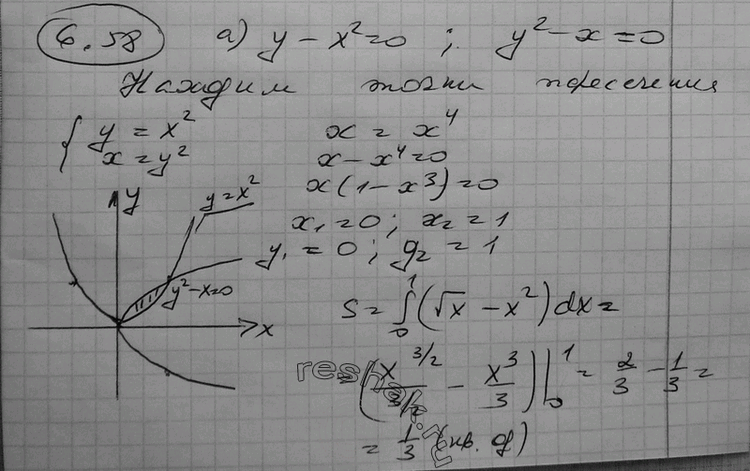 6.58 а) y - x² = 0 ; y² - x = 0
Находим точки пересечения
{ y = x²
x = y²
x = x⁴
x - x⁴ = 0
x(1 - x³) = 0
x₁ = 0 ; x₂ = 1
y₁ = 0 ; y₂ = 1
y
y = x²
y² - x = 0
x
S = ∫₀¹ (√x - x²) dx =
= (x^(3/2) / (3/2) - x³/3) |₀¹ = 2/3 - 1/3 =
= 1/3 (кв. ед)
reshak.ru